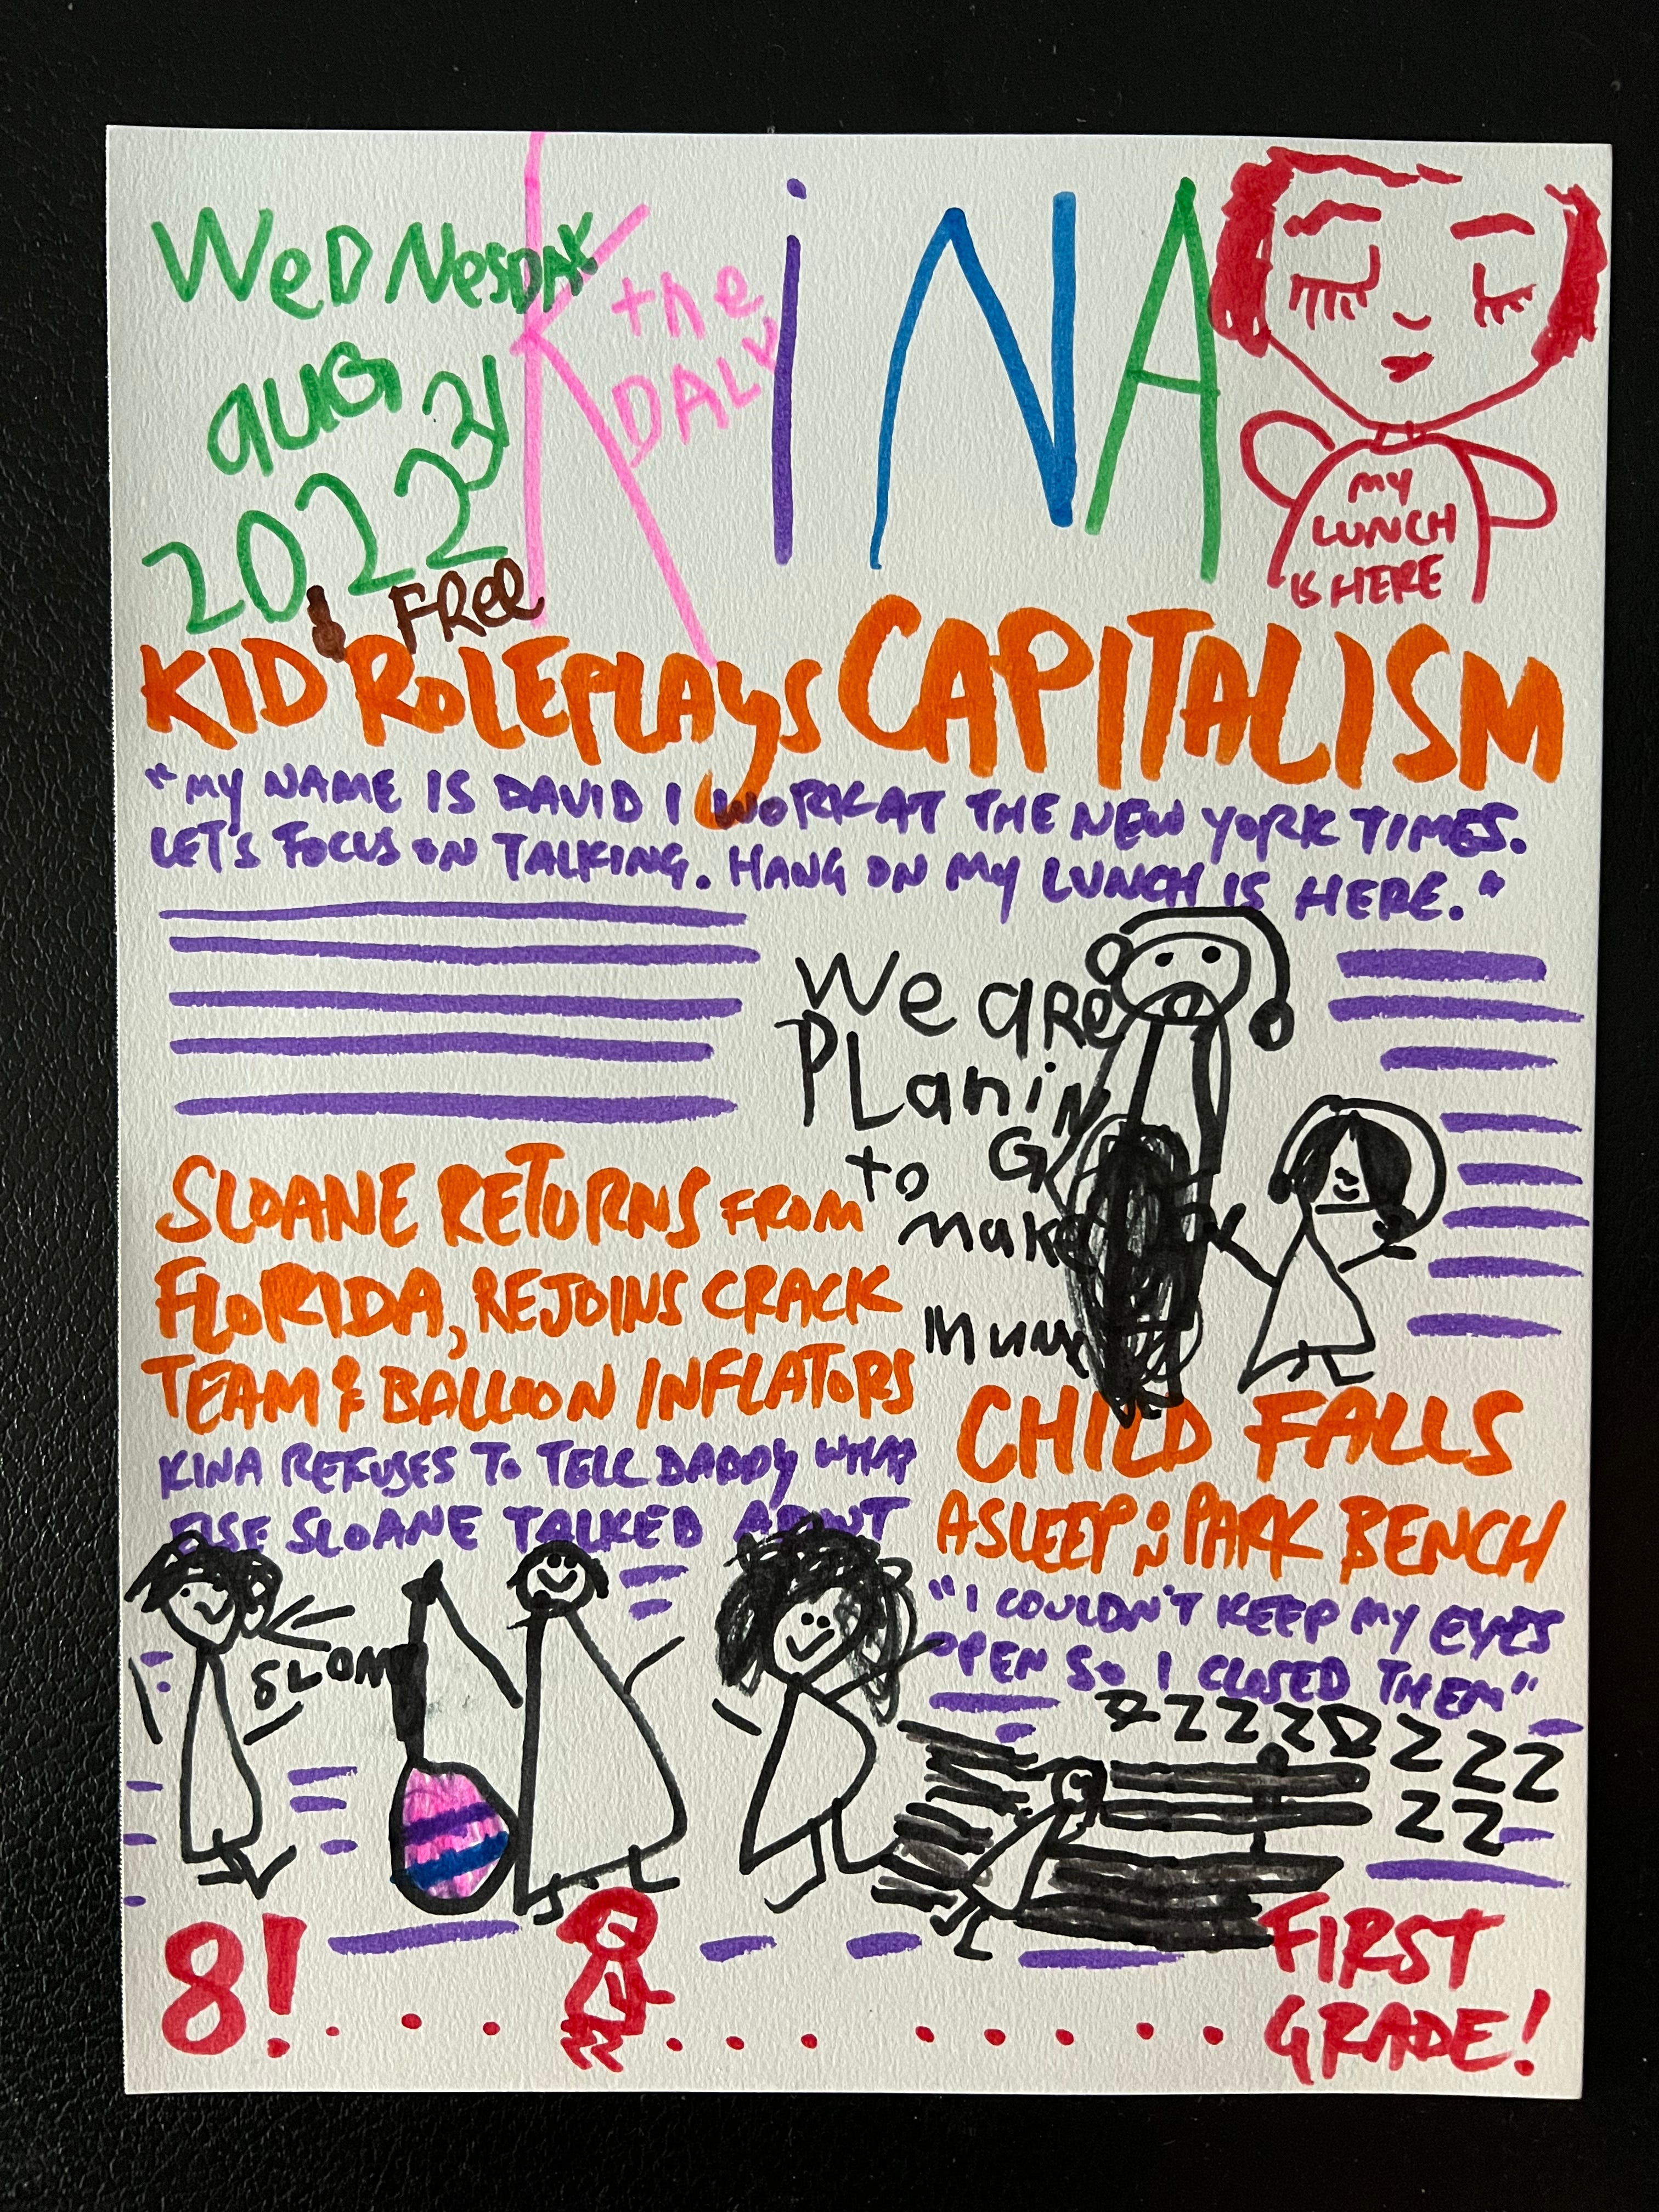 WeDNesDAY
AUG 31
2022
FRee
KiNA
the
DALY
MY
LUNCH
IS HERE
KID ROLEPLAYS CAPITALISM
"MY NAME IS DAVID I WORK AT THE NEW YORK TIMES.
LET'S FOCUS ON TALKING. HANG ON MY LUNCH IS HERE."
We aRe
PLaniNG
to
make
SLOANE RETURNS FROM
FLORIDA, REJOINS CRACK
TEAM OF BALLOON INFLATORS
KINA REFUSES TO TELL DADDY WHAT
ELSE SLOANE TALKED ABOUT
CHILD FALLS
ASLEEP ON PARK BENCH
"I COULDN'T KEEP MY EYES
OPEN SO I CLOSED THEM"
ZZZZZZZZZZ
ZZ
8!
FIRST
GRADE!